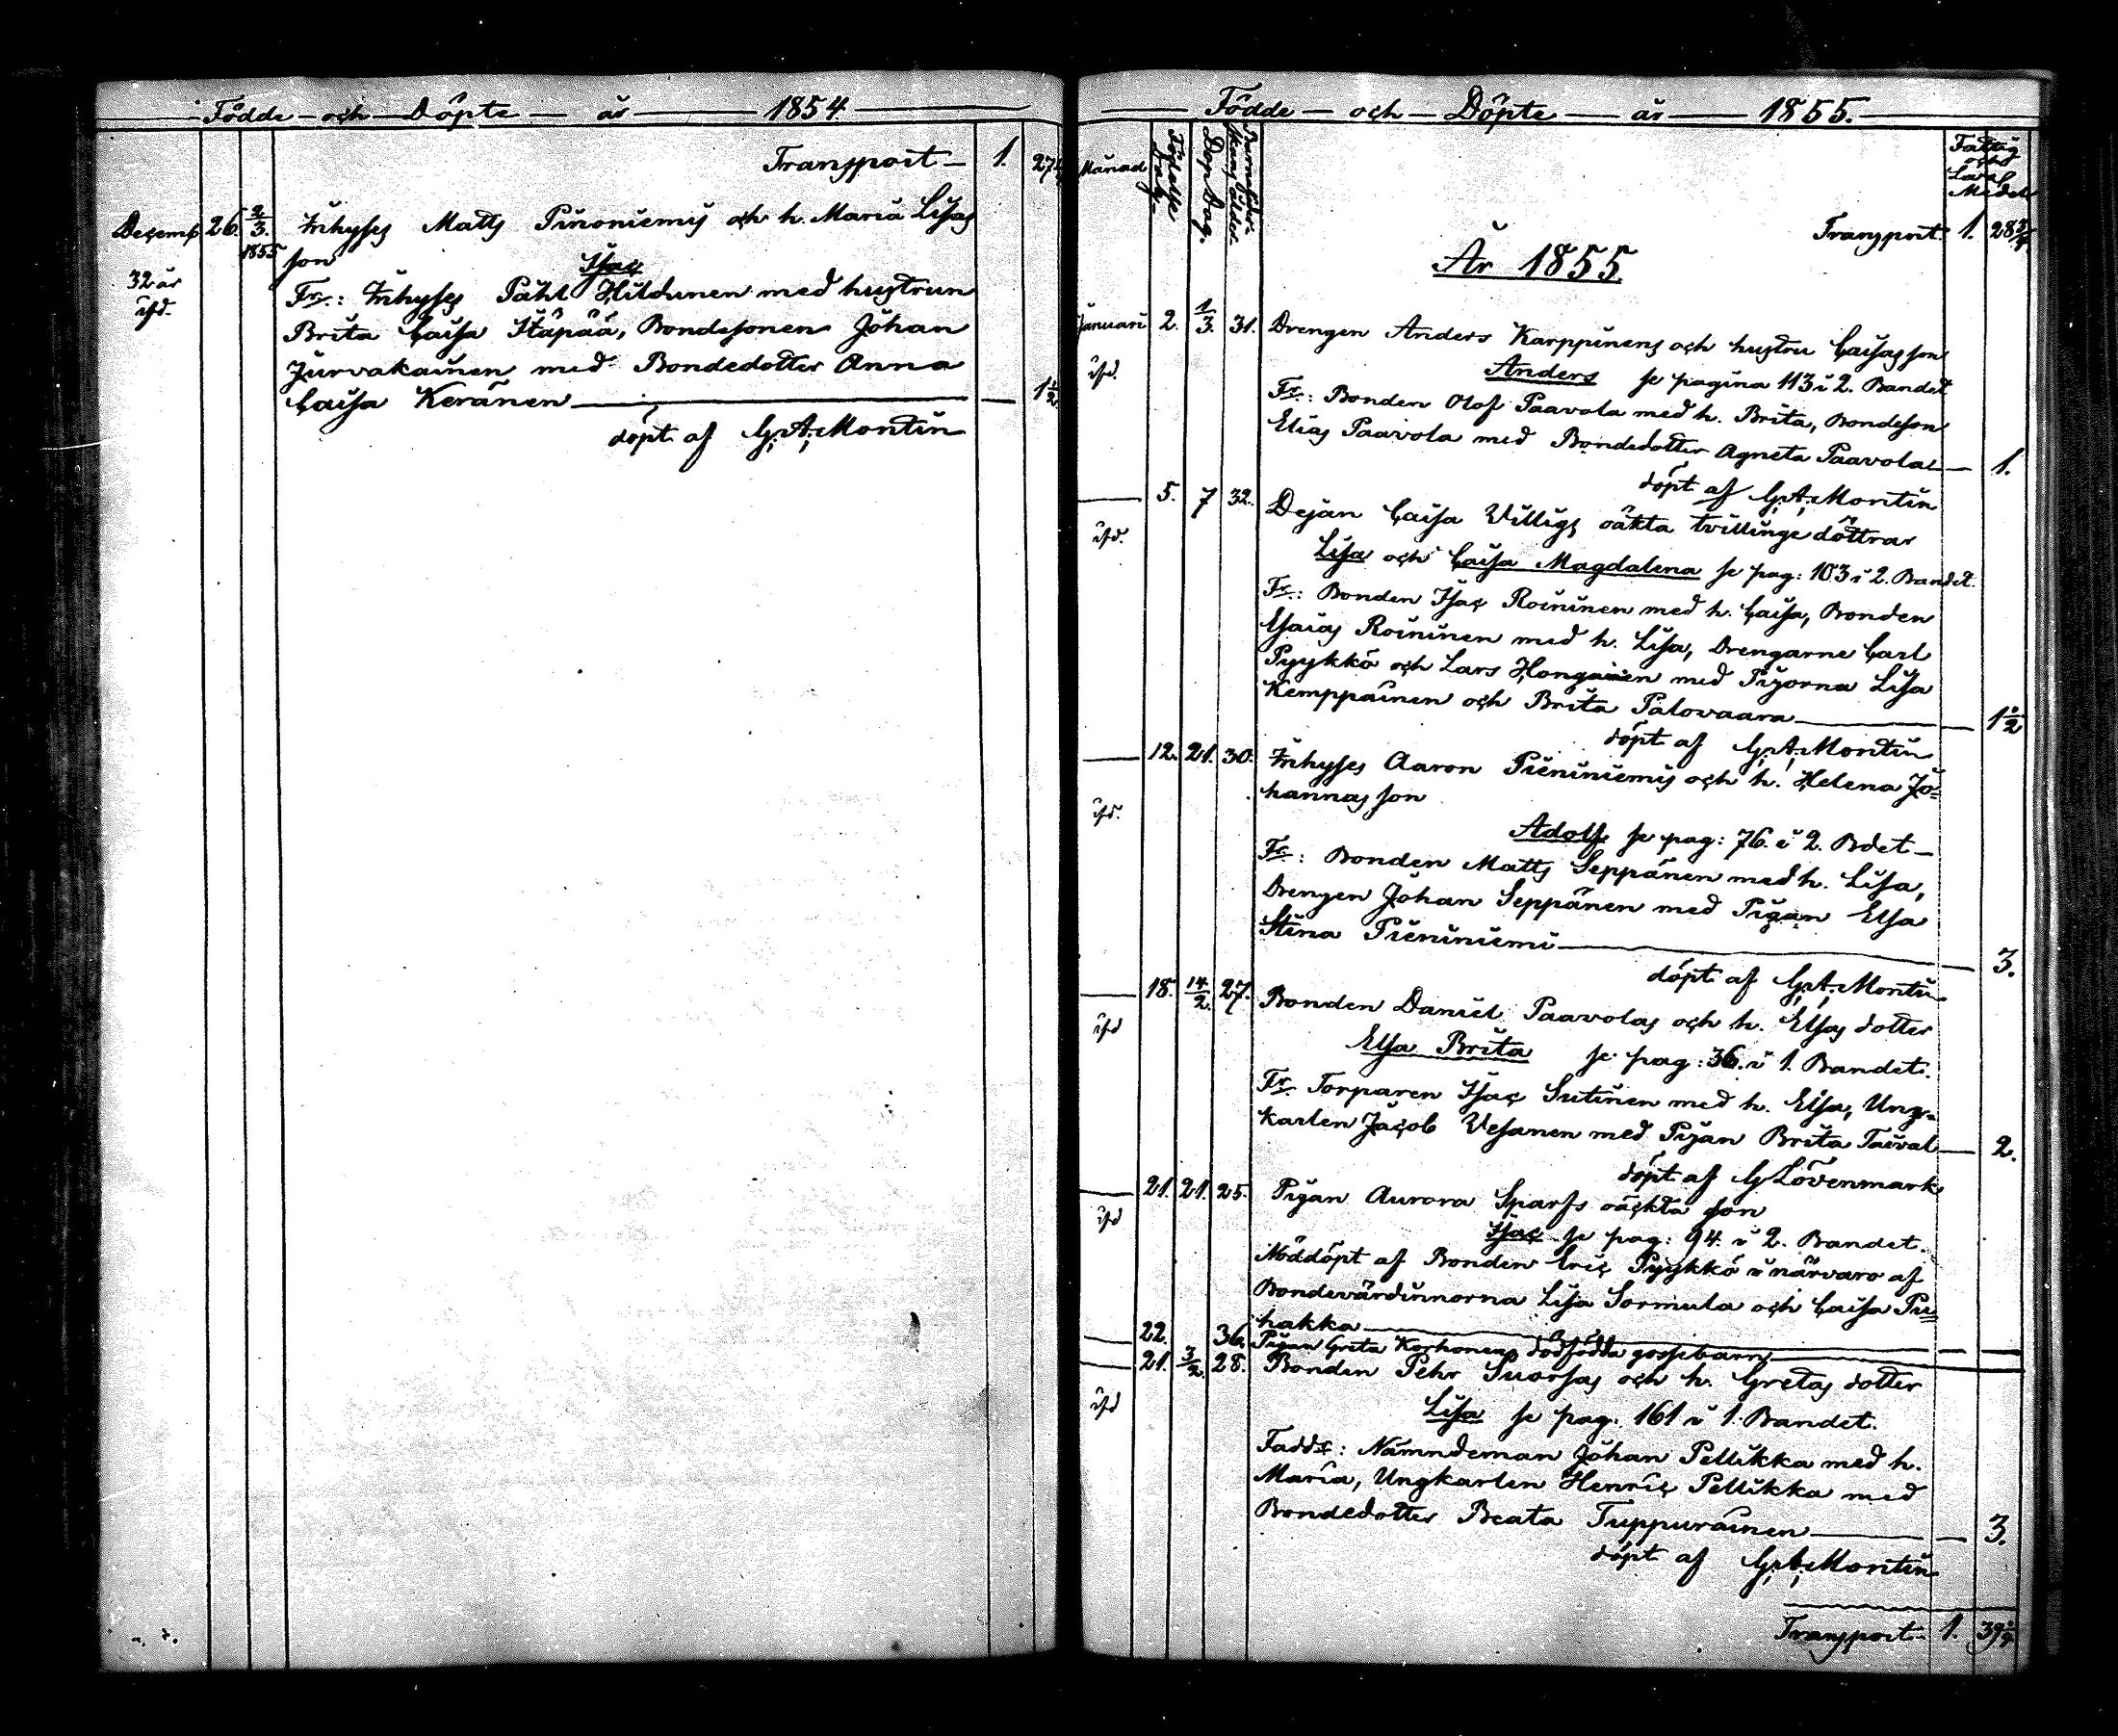 Födde och Döpte år 1854
Transport 1. 27
Decemb. 26. 2/3. 1855 Inhyses Matts Pinoniemis och h. Maria Lisas
son
Isac
32 år
Fr: Inhyses Påhl Hildunen med hustrun
Brita Caisa Stäpää, Bondesonen Johan
Jurvakainen med Bondedotter Anna
Caisa Keränen 1 1/2
döpt af G. A. Montin
Födde och Döpte år 1855.
Månad Födelse Dag Dop Dag. Barnaföderskans ålder. Fattig och Lasar Medel
Transport 1. 28 3/4
År 1855.
Januari 2. 1/3. 31. Drengen Anders Karppinens och hustru Caisas son
Anders se pagina 113 i 2. Bandet
Fr: Bonden Olof Paavola med h. Brita, Bondeson
Elias Paavola med Bondedotter Agneta Paavola 1.
döpt af G. A. Montin
5. 7 32. Dejan Caisa Villigs oäkta tvillinge döttrar
Lisa och Caisa Magdalena se pag: 103 i 2. Bandet.
Fr: Bonden Isac Roininen med h. Caisa, Bonden
Esaias Roininen med h. Lisa, Drengarne Carl
Pyykkö och Lars Hongainen med Pigorna Lisa
Kemppainen och Brita Palovaara 1 1/2
döpt af G. A. Montin
12. 21. 30. Inhyses Aaron Pieniniemis och h. Helena Jo=
hannas son
Adolf se pag: 76. i 2. Bdet
Fr: Bonden Matts Seppänen med h. Lisa,
Drengen Johan Seppänen med Pigan Elsa
Stina Pieniniemi 3.
döpt af G. A. Montin
18. 14/2. 27. Bonden Daniel Paavolas och h. Elsas dotter
Elsa Brita se pag: 36. i 1. Bandet.
Fr. Torparen Isac Sutinen med h. Elsa, Ung=
karlen Jacob Vesanen med Pijan Brita Taival 2.
döpt af G Lövenmark
21. 21. 25. Pigan Aurora Sparfs oäckta son
Isac se pag: 94. i 2. Bandet.
Nöddöpt af Bonden Eric Pyykkö i närvaro af
Bondevärdinnorna Lisa Sormula och Caisa Pu=
hakka
22. 36. Pigan Greta Korhonens dödfödda gossebarn
21. 3/2. 28. Bonden Pehr Suorsas och h. Gretas dotter
Lisa se pag: 161 i 1. Bandet.
Fadd: Nämndeman Johan Pellikka med h.
Maria, Ungkarlen Henric Pellikka med
Bondedotter Beata Tuppurainen 3.
döpt af G. A. Montin
Transport 1. 39